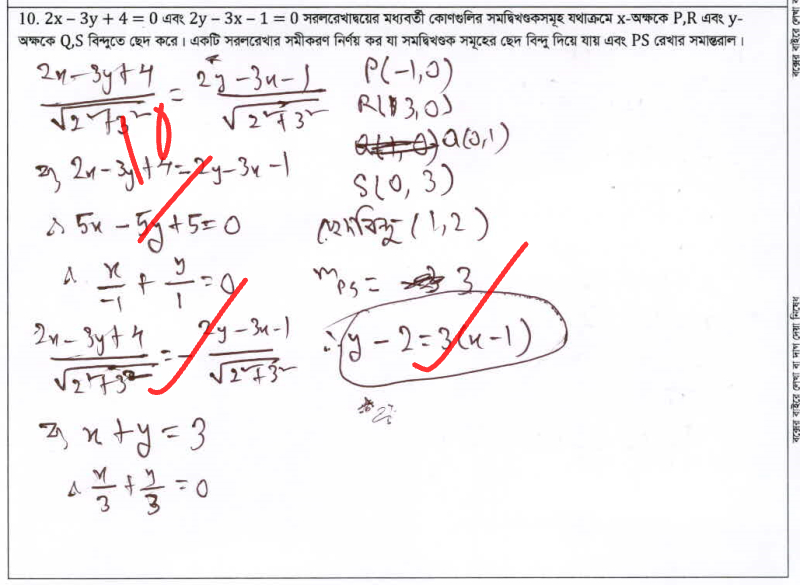 10. 2x − 3y + 4 = 0 এবং 2y − 3x − 1 = 0 সরলরেখাদ্বয়ের মধ্যবর্তী কোণগুলির সমদ্বিখণ্ডকসমূহ যথাক্রমে x-অক্ষকে P,R এবং y-
অক্ষকে Q,S বিন্দুতে ছেদ করে। একটি সরলরেখার সমীকরণ নির্ণয় কর যা সমদ্বিখণ্ডক সমূহের ছেদ বিন্দু দিয়ে যায় এবং PS রেখার সমান্তরাল।
(2x − 3y + 4)/√(2² + 3²) = (2y − 3x − 1)/√(2² + 3²)
10
⇒ 2x − 3y + 4 = 2y − 3x − 1
∴ 5x − 5y + 5 = 0
∴ x/−1 + y/1 = 0
(2x − 3y + 4)/√(2² + 3²) = − (2y − 3x − 1)/√(2² + 3²)
⇒ x + y = 3
∴ x/3 + y/3 = 0
P(−1, 0)
R(3, 0)
Q(0, 1)
S(0, 3)
ছেদবিন্দু (1, 2)
m_PS = 3
∴ y − 2 = 3(x − 1)
বক্সের বাইরে লেখা বা দাগ দেয়া নিষেধ